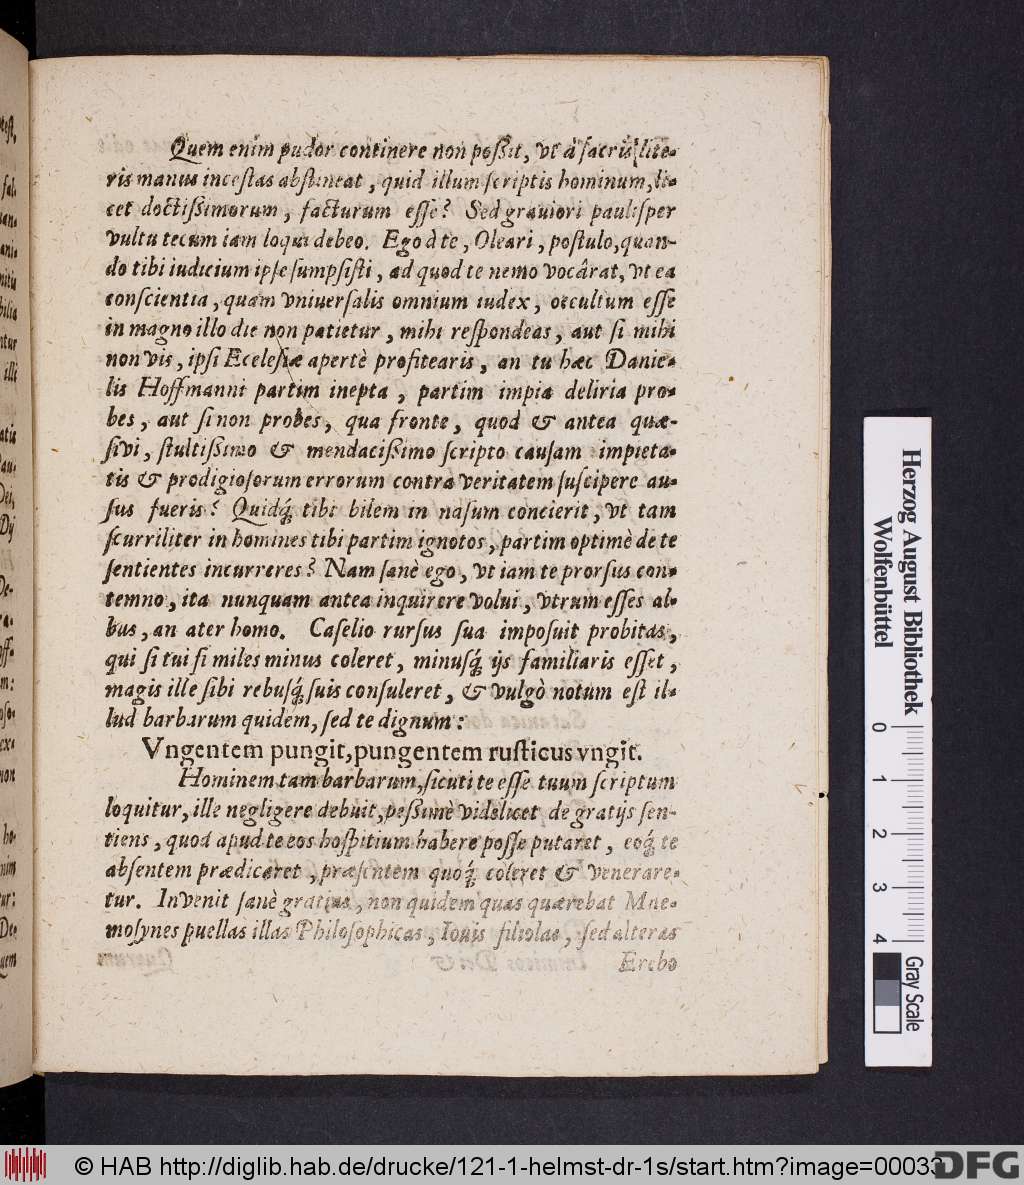 Quem enim pudor continere non poßit, vt à sacris lite-
ris manus incestas abstineat, quid illum scriptis hominum, li-
cet doctißimorum, facturum esse? Sed graviori paulisper
vultu tecum iam loqui debeo. Ego à te, Oleari, postulo, quan-
do tibi iudicium ipse sumpsisti, ad quod te nemo vocârat, vt ea
conscientia, quam vniuersalis omnium iudex, occultum esse
in magno illo die non patietur, mihi respondeas, aut si mihi
non vis, ipsi Ecclesiæ apertè profitearis, an tu hæc Danie-
lis Hoffmanni partim inepta, partim impia deliria pro-
bes, aut si non probes, qua fronte, quod & antea quæ-
sivi, stultißimo & mendacißimo scripto causam impieta-
tis & prodigiosorum errorum contra veritatem suscipere au-
sus fueris? Quidq́; tibi bilem in nasum concierit, vt tam
scurriliter in homines tibi partim ignotos, partim optimè de te
sentientes incurreres? Nam sanè ego, vt iam te prorsus con-
temno, ita nunquam antea inquirere volui, vtrum esses al-
bus, an ater homo. Caselio rursus sua imposuit probitas,
qui si tui similes minus coleret, minusq́; ijs familiaris esset,
magis ille sibi rebusq́; suis consuleret, & vulgò notum est il-
lud barbarum quidem, sed te dignum:
Vngentem pungit, pungentem rusticus vngit.
Hominem tam barbarum, sicuti te esse tuum scriptum
loquitur, ille negligere debuit, peßimè videlicet de gratijs sen-
tiens, quod apud te eos hospitium habere posse putaret, eoq́; te
absentem prædicaret, præsentem quoq́; coleret & venerare-
tur. Invenit sanè gratias, non quidem quas quærebat Mne-
mosynes puellas illas Philosophicas, Iouis filiolas, sed alteras
Erebo
Herzog August Bibliothek
Wolfenbüttel
0 1 2 3 4
Gray Scale
© HAB http://diglib.hab.de/drucke/121-1-helmst-dr-1s/start.htm?image=00033
DFG